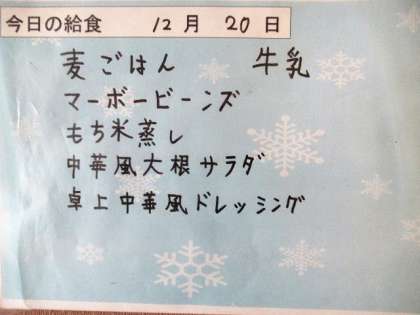 今日の給食 12月 20日
麦ごはん 牛乳
マーボービーンズ
もち米蒸し
中華風大根サラダ
卓上中華風ドレッシング